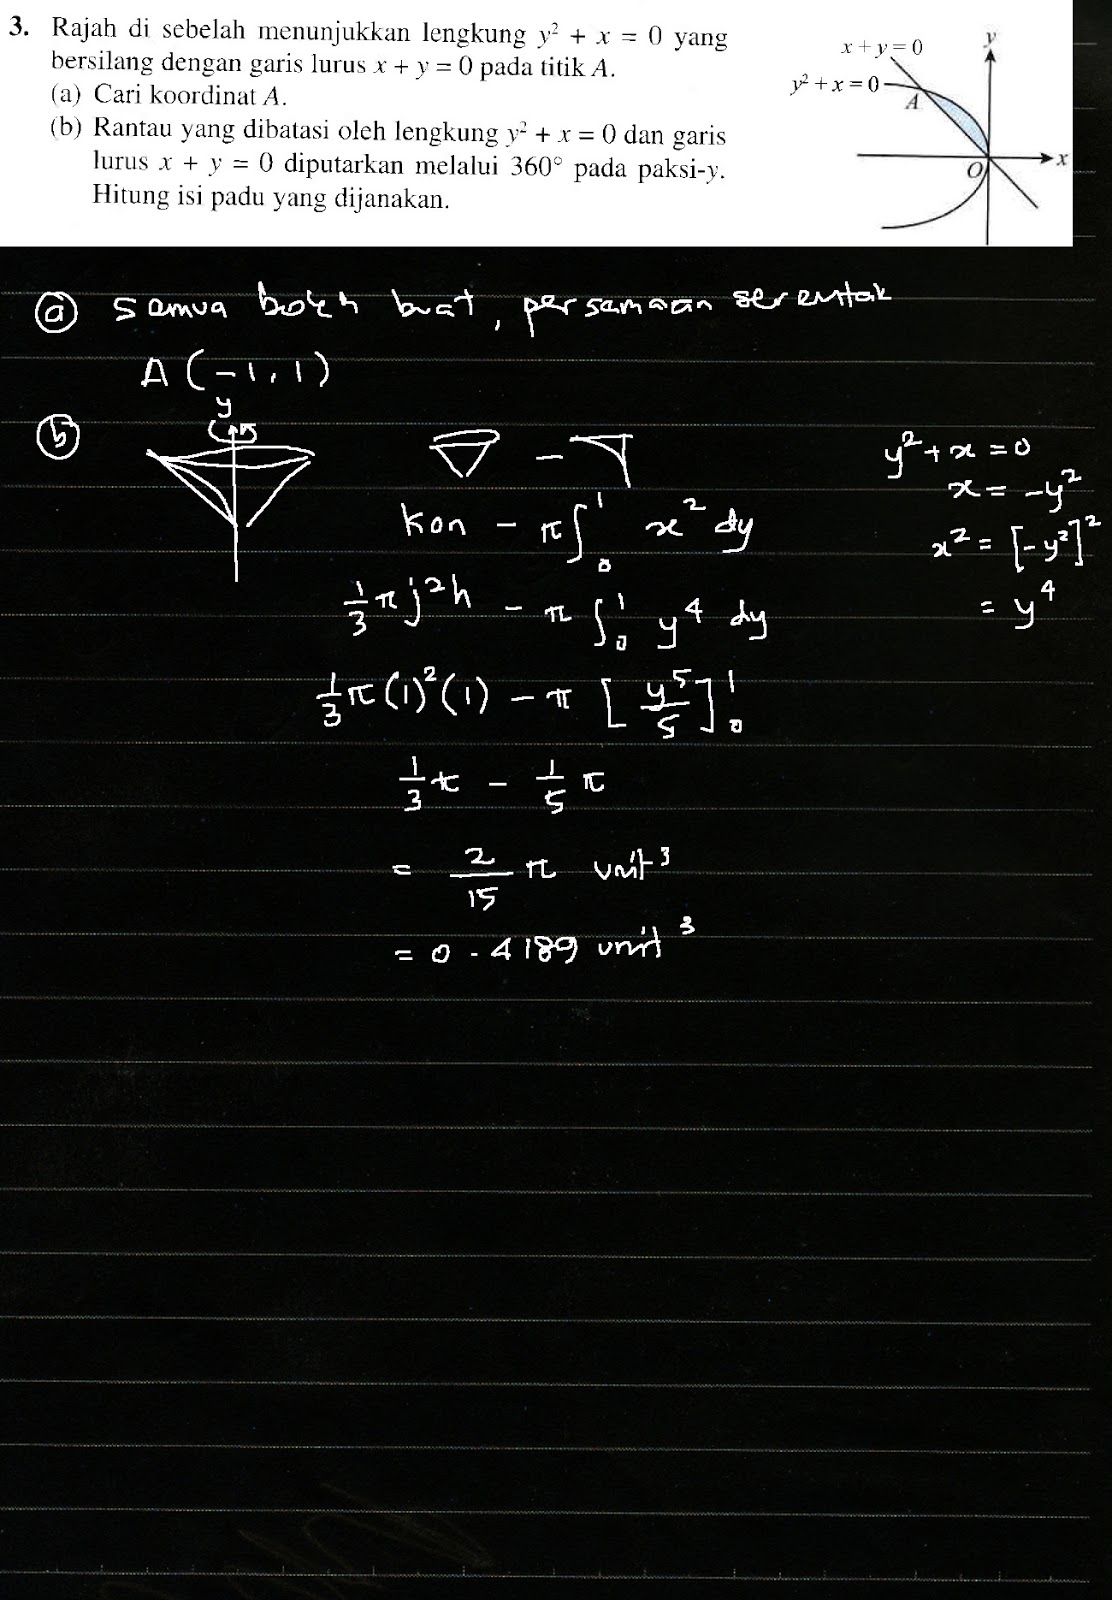 3. Rajah di sebelah menunjukkan lengkung y² + x = 0 yang
bersilang dengan garis lurus x + y = 0 pada titik A.
(a) Cari koordinat A.
(b) Rantau yang dibatasi oleh lengkung y² + x = 0 dan garis
lurus x + y = 0 diputarkan melalui 360° pada paksi-y.
Hitung isi padu yang dijanakan.
x + y = 0
y
y² + x = 0
A
x
O
(a) semua boleh buat, persamaan serentak
A (-1, 1)
y
(b)
-
y² + x = 0
x = -y²
kon - π∫₀¹ x² dy
x² = [-y²]²
1/3 πj²h - π∫₀¹ y⁴ dy
= y⁴
1/3 π(1)²(1) - π [y⁵/5]₀¹
1/3 π - 1/5 π
= 2/15 π unit³
= 0.4189 unit³